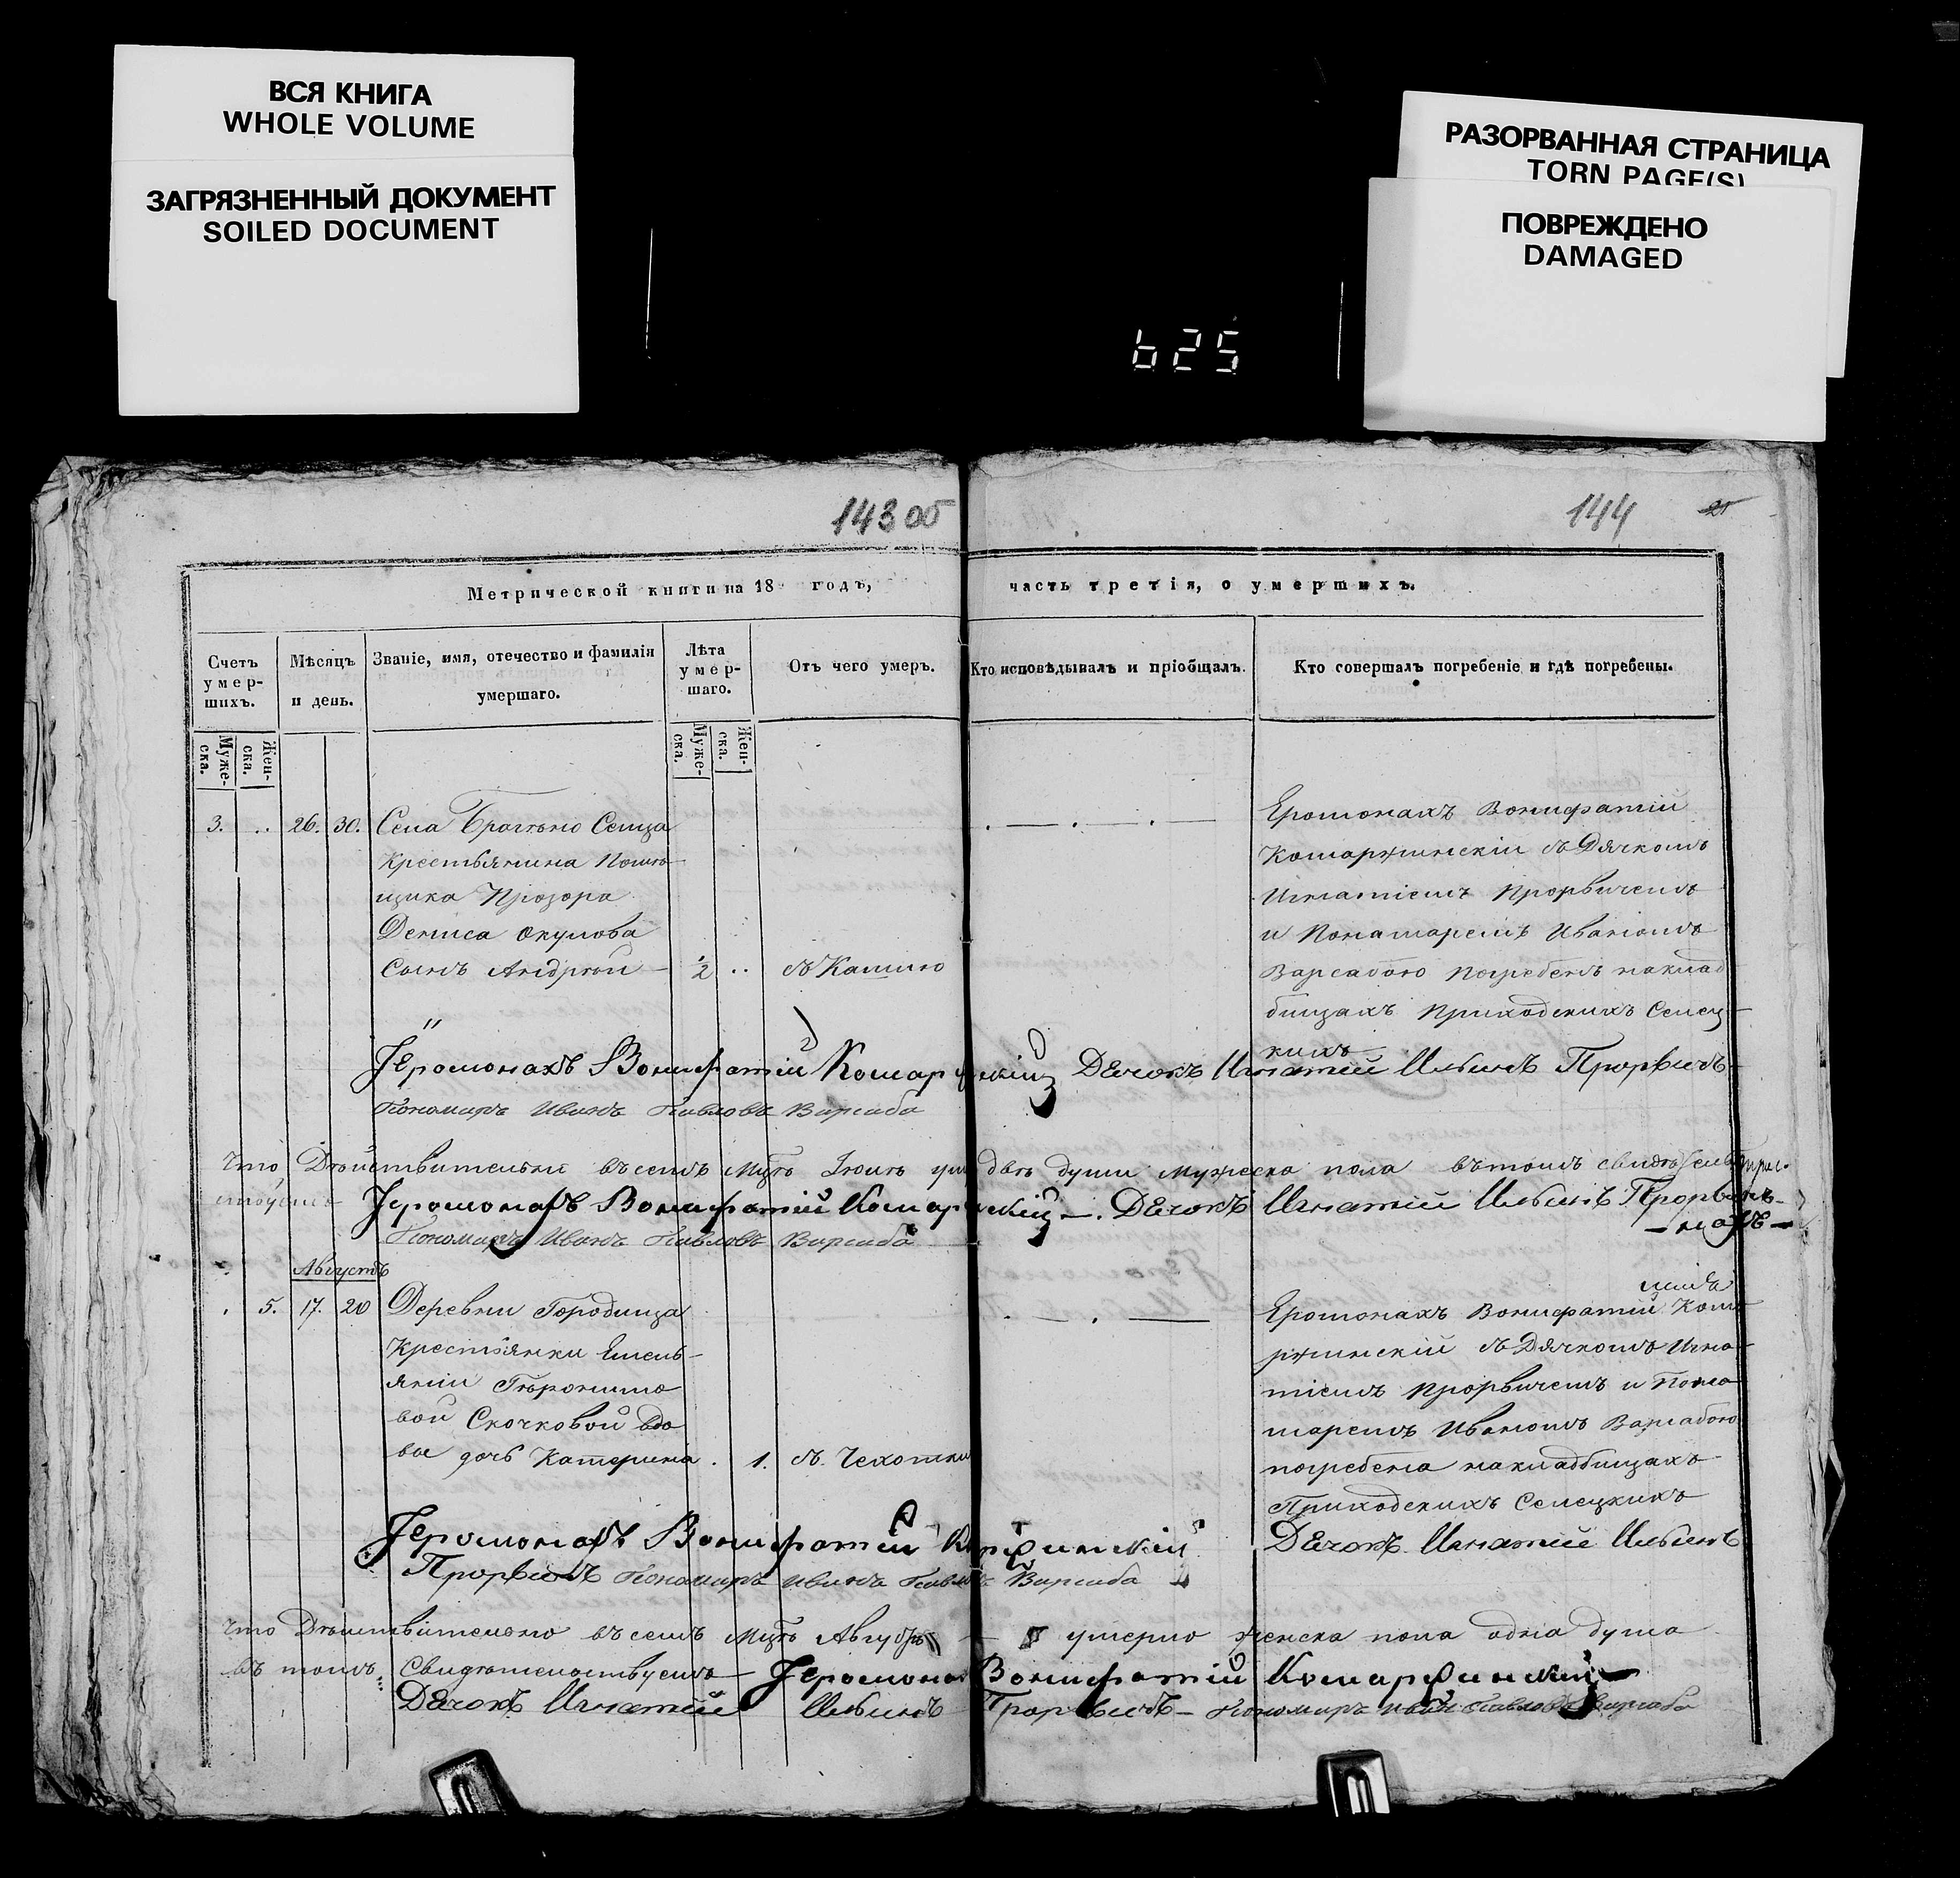 ВСЯ КНИГА
WHOLE VOLUME
ЗАГРЯЗНЕННЫЙ ДОКУМЕНТ
SOILED DOCUMENT
РАЗОРВАННАЯ СТРАНИЦА
TORN PAGE(S)
ПОВРЕЖДЕНО
DAMAGED
625
143 об
144 21
Метрической книги на 18 годъ, часть третія, о умершихъ.
Счетъ умер-шихъ.
Мѣсяцъ и день.
Званіе, имя, отечество и фамилія умершаго.
Лѣта умер-шаго.
Отъ чего умеръ.
Кто исповѣдывалъ и пріобщалъ.
Кто совершалъ погребеніе и гдѣ погребены.
Муже-ска.
Жен-ска.
Муже-ска.
Жен-ска.
3. .. 26. 30. Села Селца
Крестьянина Помѣ-
щика Прозора
Дениса Окулова
Сынъ Андрѣй – 2 .. съ Кашлю
Еромонахъ Вонифатій
Комаржинскій съ Дячкомъ
Игнатіемъ Прорвичемъ
и Понамаремъ Иваномъ
Варсабою погребенъ наклад
бищахъ Приходскихъ Селец-
кихъ
Іеромонахъ Вонифатій Дечокъ Игнатій Ильинъ Прорвичъ
Пономаръ Иванъ Павловъ Варсаба
Что Дѣйствительно въ семъ Мцѣ двѣ души мужеска пола въ томъ
Іеромонахъ Вонифатій Дечокъ Игнатій Ильинъ
Пономаръ Иванъ Павловъ Варсаба
Августъ
. 5. 17. 20 Деревни Городища
Крестьянки Емель-
яніи Гѣронимо
вой Скочковой вдо
вы дочь Катерина . 1. съ Чехотки
Еромонахъ Вонифатій Кома
ржинскій съ Дячкомъ Игна-
тіемъ Прорвичемъ и Пона-
маремъ Иваномъ Варсабою
погребена накладбищахъ
Приходскихъ Селецкихъ
Іеромонахъ Вонифатій Дечокъ Игнатій Ильинъ
Прорвичъ Пономаръ Иванъ Варсаба
Что Дѣйствительно въ семъ Мцѣ умерло женска пола одна душа
въ томъ Свидѣтельствуемъ Іеромонахъ Вонифатій Комаржинскій
Дечокъ Игнатій Ильинъ Прорвичъ – Пономаръ Иванъ Павловъ Варсаба